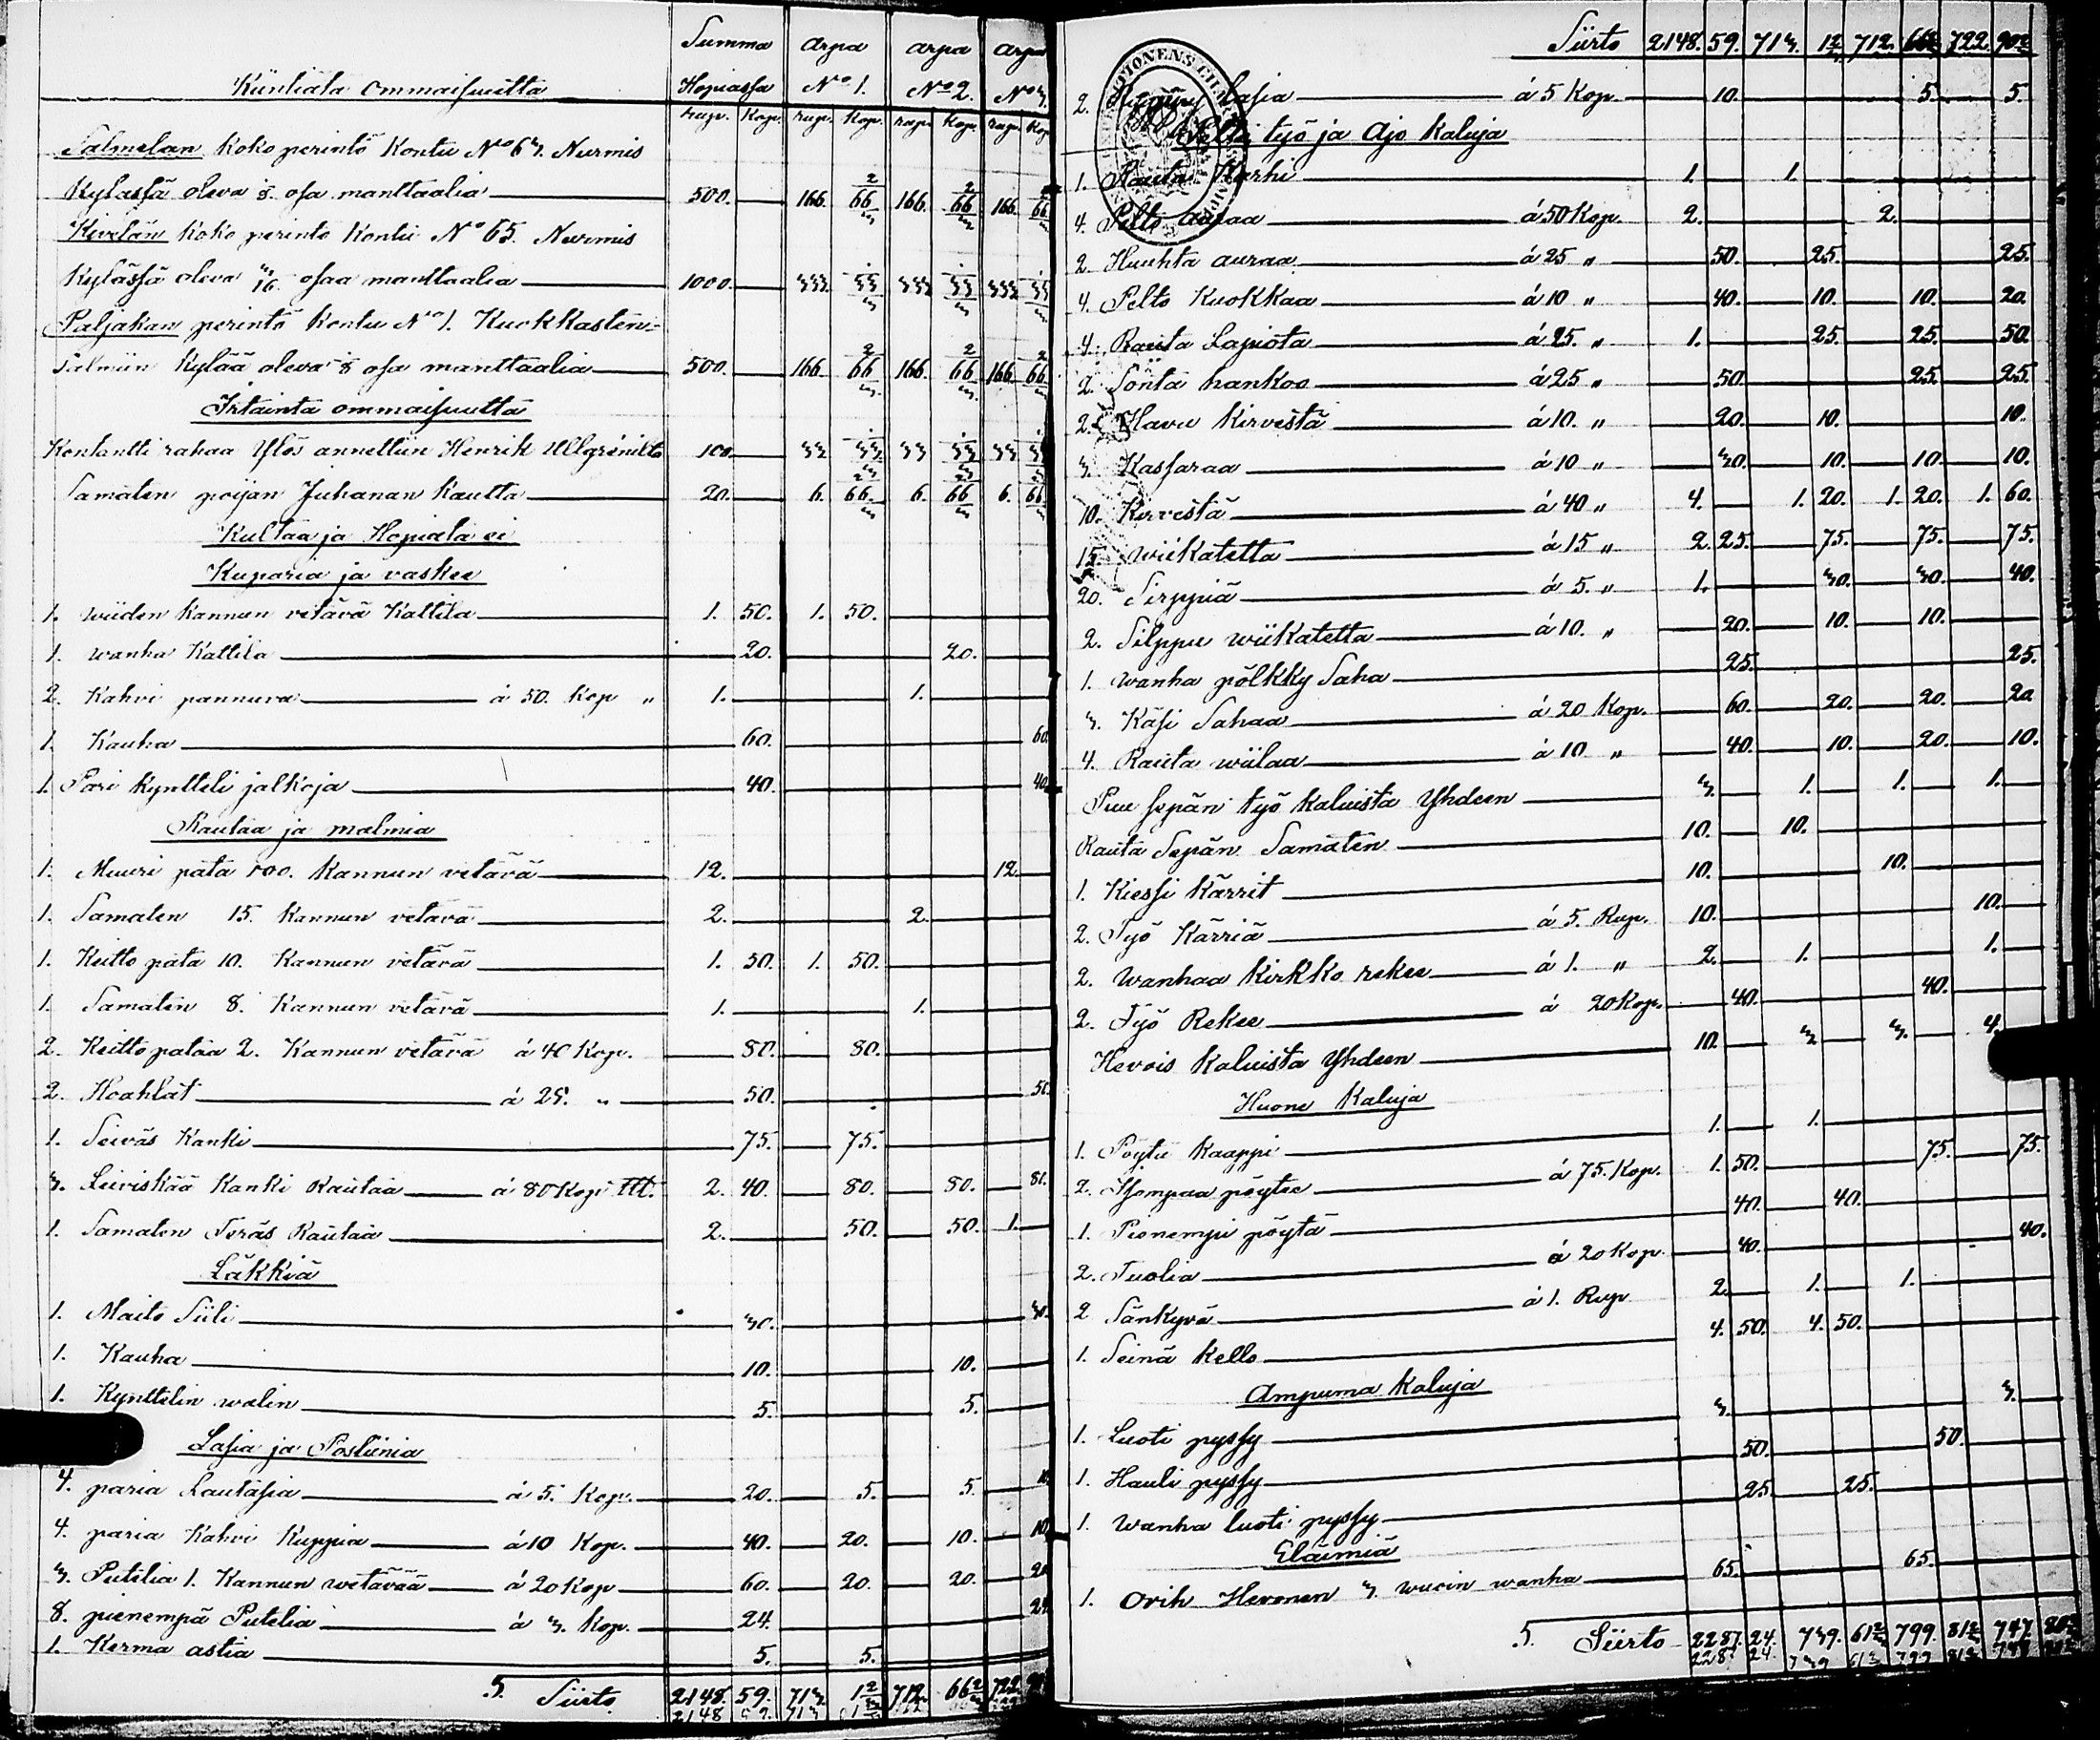 Summa arpa arpa arpa
Kiinliätä ommaisuutta Hopiassa No 1. No 2. No 3.
rup. Kop. rup. Kop. rup. Kop. rup. Kop.
Salmelan koko perintö Kontu No 63. Nurmis
Kylässä oleva 1/8 osa manttaalia 500. 166. 66 2/3 166. 66 2/3 166. 66 2/3
Kivelän koko perintö Kontu No 65. Nurmis
Kylässä oleva 3/16 osaa manttaalia 1000. 333. 33 1/3 333 33 1/3 333 33 1/3
Paljakan perintö Kontu No 1. Kuokkasten-
salmiin Kylää oleva 1/8 osa manttaalia 500. 166. 66 2/3 166. 66 2/3 166. 66 2/3
Irtainta ommaisuutta
Kontantti rahaa Ylös annettiin Henrik Ullgréniltä 100. 33 33 1/3 33 33 1/3 33 33 1/3
Samaten poijan Juhanan Kautta 20. 6. 66 2/3 6. 66 2/3 6. 66 2/3
Kultaa ja Hopiata ei
Kuparia ja vaskee
1. wiiden Kannun vetävä Kattila 1. 50. 1. 50.
1. wanha Kattila 20. 20.
2. Kahvi pannuva á 50. Kop " 1. 1.
1. Kauha 60. 60.
1. Pari Kyntteli jalkoja 40. 40.
Rautaa ja malmia
1. Muuri pata 100. Kannun vetävä 12. 12.
1. Samaten 15. Kannun vetävä 2. 2.
1. Keitto pata 10. Kannun vetävä 1. 50. 1. 50.
1. Samaten 8. Kannun vetävä 1. 1.
2. Keitto pataa 2. Kannun vetävä á 40 Kop. 80. 80.
2. Haahlat á 25. " 50. 50.
1. Seiväs Kanki 75. 75.
3. Leiviskää Kanki Rautaa á 80 Kop 2. 40. 80. 80. 80.
1. Samaten Teräs Rautaa 2. 50. 50. 1.
Läkkiä
1. Maito Siili 30. 30.
1. Kauha 10. 10.
1. Kynttelin walin 5. 5.
Lasia ja Posliinia
4. paria Lautasia á 5. Kop. 20. 5. 5. 10.
4. paria Kahvi Kuppia á 10 Kop. 40. 20. 10. 10.
3. Putelia 1. Kannun wetävää á 20 Kop 60. 20. 20. 20.
8. pienempä Putelia á 3. Kop. 24. 24.
1. Kerma astia 5. 5.
5. Siirto 2148. 59. 713. 1 2/3 712. 66 2/3 722.
Siirto 2148. 59. 713. 1 2/3 712. 66 2/3 722. 90 2/3
2. lasia á 5 Kop. 10. 5. 5.
Pelto työ ja Ajo Kaluja
1. Rauta Karhi 1. 1.
4. Pelto auraa á 50 Kop. 2. 2.
2. Huuhta auraa á 25 " 50. 25. 25.
4. Pelto Kuokkaa á 10 " 40. 10. 10. 20.
4. Rauta Lapiota á 25. " 1. 25. 25. 50.
2. Sönta hankoo á 25 " 50. 25. 25.
2. Havu Kirvestä á 10. " 20. 10. 10.
3. Kassaraa á 10 " 30. 10. 10. 10.
10. Kirvestä á 40 " 4. 1. 20. 1. 20. 1. 60.
15. wiikatetta á 15 " 2. 25. 75. 75. 75.
20. Sirppiä á 5. " 1. 30. 30. 40.
2. Silppu wiikatetta á 10. " 20. 10. 10.
1. wanha pölkky Saha 25. 25.
3. Käsi Sahaa á 20 Kop. 60. 20. 20. 20
4. Rauta wiilaa á 10 " 40. 10. 20. 10.
Puu sepän työ kaluista Yhdeen 3. 1. 1. 1.
Rauta Sepän Samaten 10. 10.
1. Kiessi Kärrit 10. 10.
2. Työ Kärriä á 5. Rup. 10. 10.
2. wanhaa Kirkko rekee á 1. " 2. 1. 1.
2. Työ Rekee á 20 Kop. 40. 40.
Hevois Kaluista Yhdeen 10. 3 3. 4.
Huone Kaluja
1. Pöytä Kaappi 1. 1.
2. Isompaa pöytee á 75. Kop. 1. 50. 75. 75.
1. Pienempi pöytä 40. 40.
2. Tuolia á 20 Kop. 40. 40.
2 Sänkyvä á 1. Rup 2. 1. 1.
1. Seinä Kello 4. 50. 4. 50.
Ampuma Kaluja
1. Luoti pyssy 3. 3.
1. Hauli pyssy 50. 50.
1. Wanha luoti pyssy 25. 25.
Eläimiä
1. Orih Hevonen 3. wuoin wanha 65. 65.
5. Siirto 2287. 24. 739. 61 2/3 799. 81 2/3 747. 80 2/3